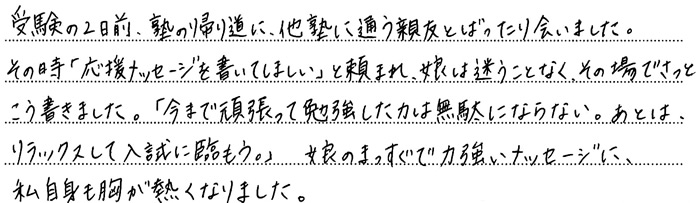 受験の2日前、塾の帰り道に、他塾に通う親友とばったり会いました。
その時「応援メッセージを書いてほしい」と頼まれ、娘は迷うことなく、その場でさっと
こう書きました。「今まで頑張って勉強した力は無駄にならない。あとは、
リラックスして入試に臨もう。」 娘のまっすぐで力強いメッセージに、
私自身も胸が熱くなりました。